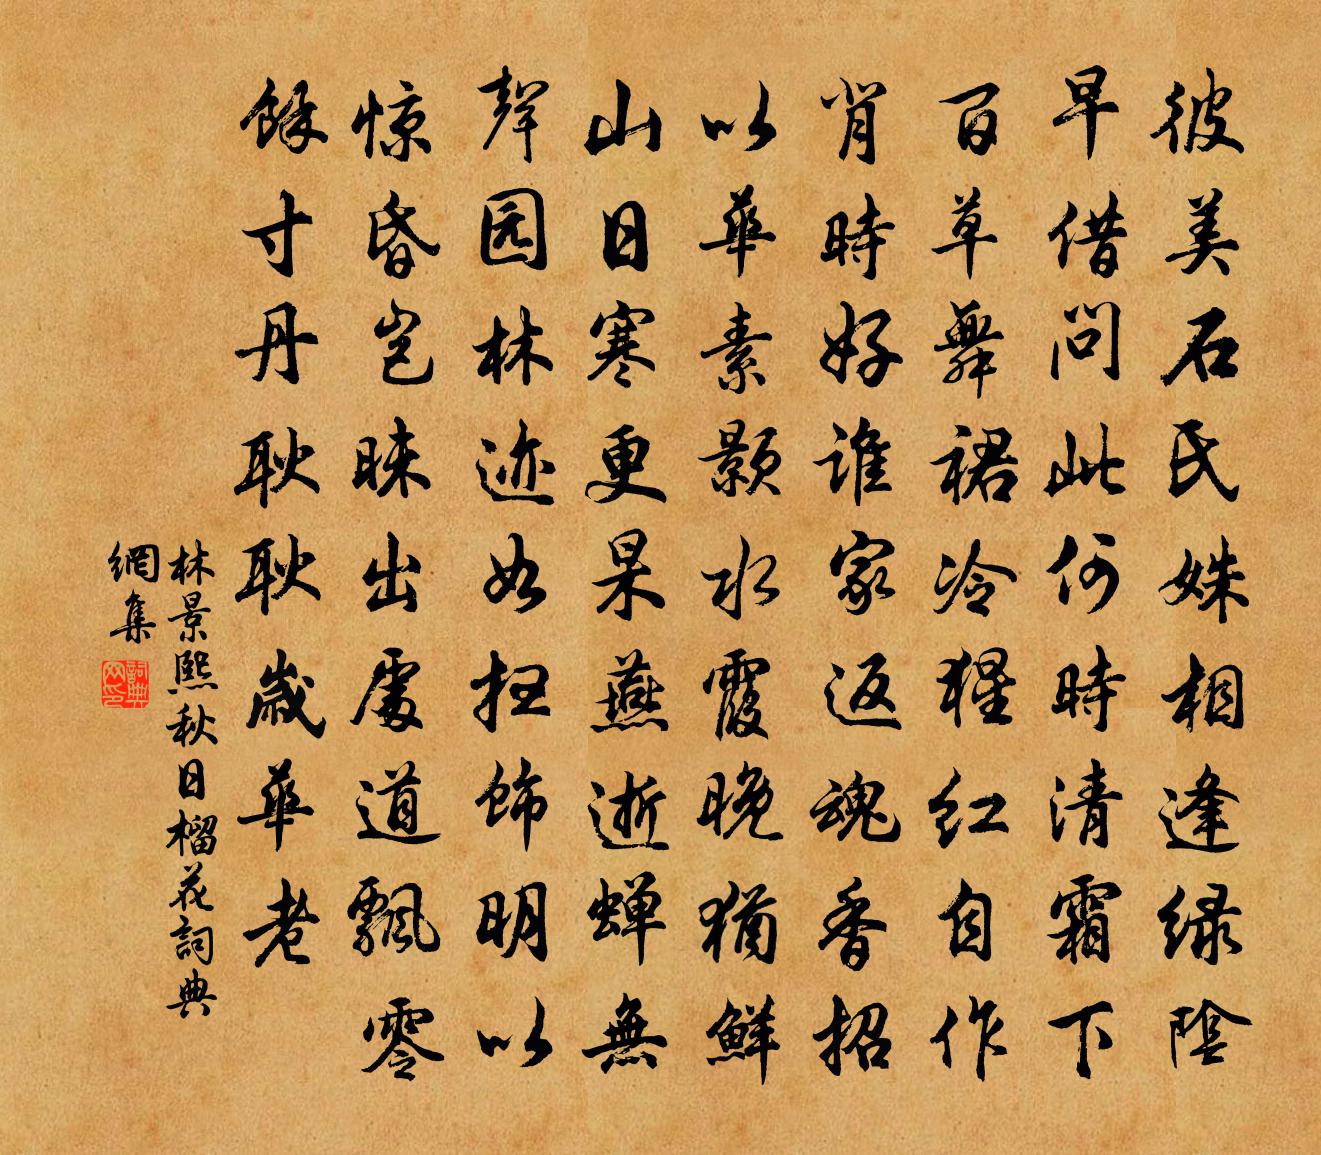 彼美石氏姝相逢绿陰
早借问此何時清霜下
百草舞裙冷猩红自作
肖時好谁家返魂香招
以華素颢水霞晚猶鮮
山日寒更杲燕逝蝉無
聲园林迹如扫饰明以
惊昏岂昧出處道飄零
餘寸丹耿耿歲華老
林景熙秋日榴花詞典
網集